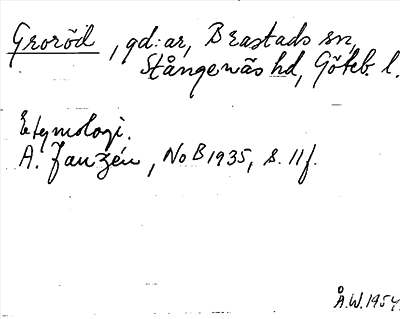 Groröd, gd:ar, Brastads sn,
Stångenäs hd, Göteb. l.
Etymologi.
A. Janzén, NoB 1935, s. 11f.
Å.W. 1954.